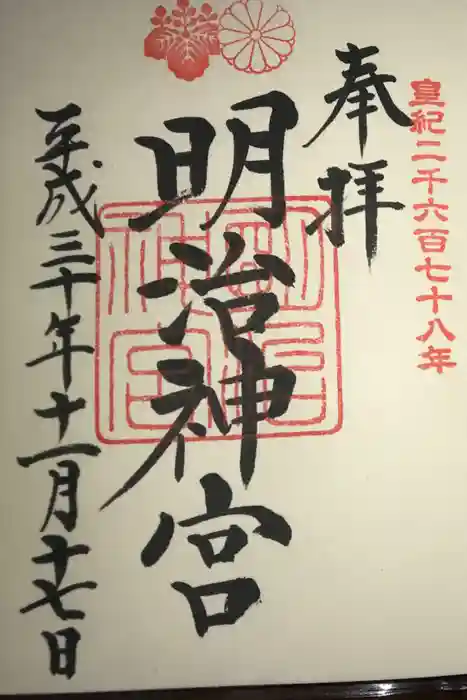 皇紀二千六百七十八年
奉拝
明治神宮
平成三十年十一月十七日
明治神宮